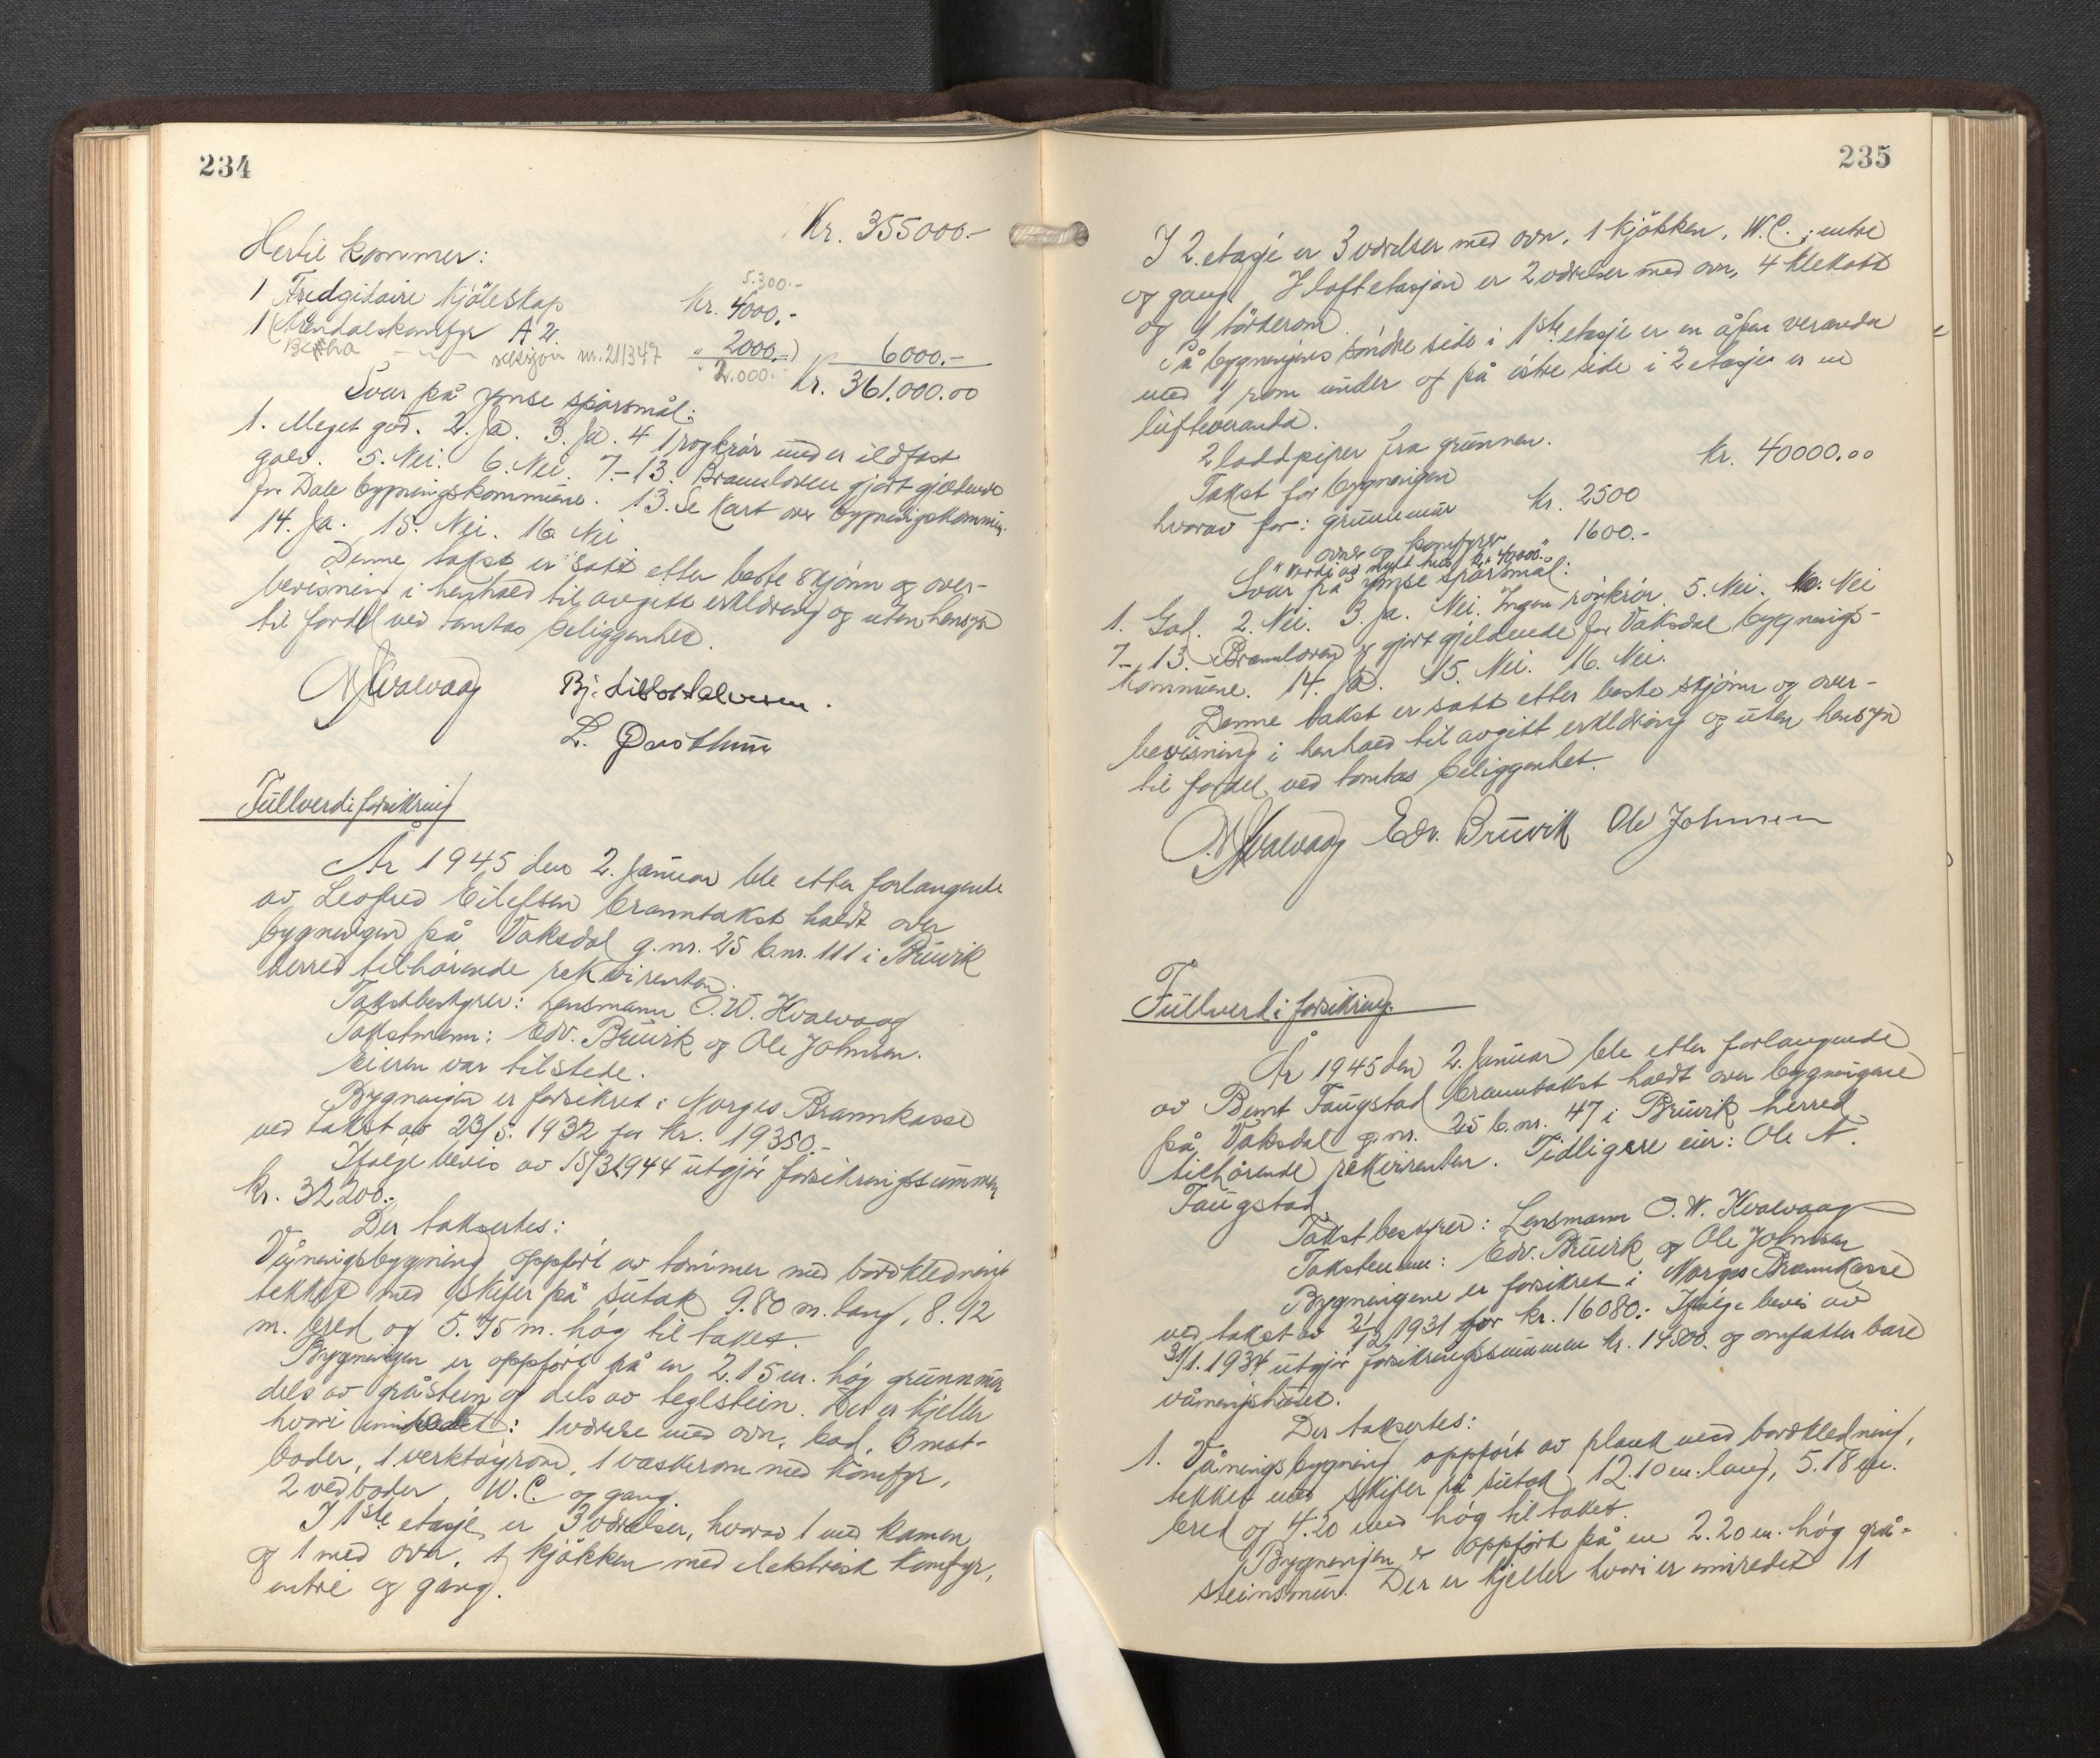 234
Kr. 355000.-
Hertil kommer:
5.300.-
1 Fridgidaire kjøleskap Kr. 4000.-
1 (Arendalskomfyr A 4. " 2000.-) 6000.-
Bertha - " - m. 211347 " 2.000.- Kr. 361.000.00
Svar på ymse spørsmål:
1. Meget god. 2. Ja. 3. Ja. 4 1 røgkrør under ildfast
golv. 5. Nei. 6. Nei. 7.-13. Brannloven gjort gjeldende
for Dale bygningskommune. 13. Se kart over bygningskommun.
14. Ja. 15. Nei. 16 Nei
Denne takst er satt etter beste skjønn og over-
bevisning i henhold til avgitt erklæring og uten hensyn
til fordel ved tomtas beliggenhet.
O W Kvalvaag
L.
Fullverdiforsikring
År 1945 den 2. Januar ble etter forlangende
av Leofred Eilefsen branntakst haldt over
bygningen på Vaksdal g.nr. 25 b.nr. 111 i Bruvik
herred tilhørende rekvirenten.
Takstbestyrer: Lensmann O.W. Kvalvaag
Takstmenn: Edv. Bruvik og Ole Johnsen.
Eieren var tilstede.
Bygningen er forsikret i Norges Brannkasse
ved takst av 23/5. 1932 for kr. 19350.-
Ifølge bevis av 15/3 1944 utgjør forsikringssummen
kr. 32200.-
Der taksertes:
Våningsbygning oppført av tømmer med bordkledning
tekket med skifer på sutak 9.80 m. lang, 8.92
m. bred og 5.45 m. høg til taket.
Bygningen er oppført på en 2.15 m. høg grunnmur
dels av gråstein og dels av teglstein. Det er kjeller
hvori innredet: 1 værelse med ovn, bad, 3 mat-
boder, 1 verktøyrom, 1 vaskerom med komfyr,
2 vedboder, W.C. og gang.
I 1ste etasje er 3 værelser, hvorav 1 med kamin
og 1 med ovn, 1 kjøkken med elektrisk komfyr,
entré og gang.
235
I 2. etasje er 3 værelser med ovn, 1 kjøkken, W.C., entré
og gang. I loftetasjen er 2 værelser med ovn, 4 klekott
og 1 tørkerom.
På bygningens søndre side i 1ste etasje er en åpen veranda
med 1 rom under og på østre side i 2 etasje er en
luftveranda.
2 loddpiper fra grunnen.
Takst for bygningen Kr. 40000.00
hvorav for: grunnmur Kr. 2500
ovner og komfyrer 1600.-
" Verdi as nytt hus kr. 40000.-
Svar på ymse spørsmål:
1. God. 2. Nei. 3. Ja. Nei. Ingen røykrør. 5. Nei. 6. Nei
7-13. Brannloven er gjort gjeldende for Vaksdal bygnings-
kommune. 14. Ja. 15. Nei. 16. Nei.
Denne takst er satt etter beste skjønn og over-
bevisning i henhold til avgitt erklæring og uten hensyn
til fordel ved tomtas beliggenhet.
O W Kvalvaag Edv. Bruvik Ole Johnsen
Fullverdiforsikring.
År 1945 den 2. Januar ble etter forlangende
av Bernt Faugstad branntakst haldt over bygningene
på Vaksdal g.nr. 25 b.nr. 47 i Bruvik herred
tilhørende rekvirenten. Tidligere eier: Ole N.
Faugstad.
Takstbestyrer: Lensmann O.W. Kvalvaag
Takstmenn: Edv. Bruvik og Ole Johnsen
Bygningene er forsikret i Norges Brannkasse
ved takst av 21/12 1931 for kr. 16080.- Ifølge bevis av
31/1. 1934 utgjør forsikringssummen kr. 14500. og omfatter bare
våningshuset.
Der taksertes:
1. Våningsbygning oppført av plank med bordkledning,
tekket med skifer på sutak 12.10 m. lang, 5.18 m.
bred og 4.20 med høg til taket.
Bygningen er oppført på en 2.20 m. høg grå-
steinsmur. Der er kjeller hvori er innredet 1